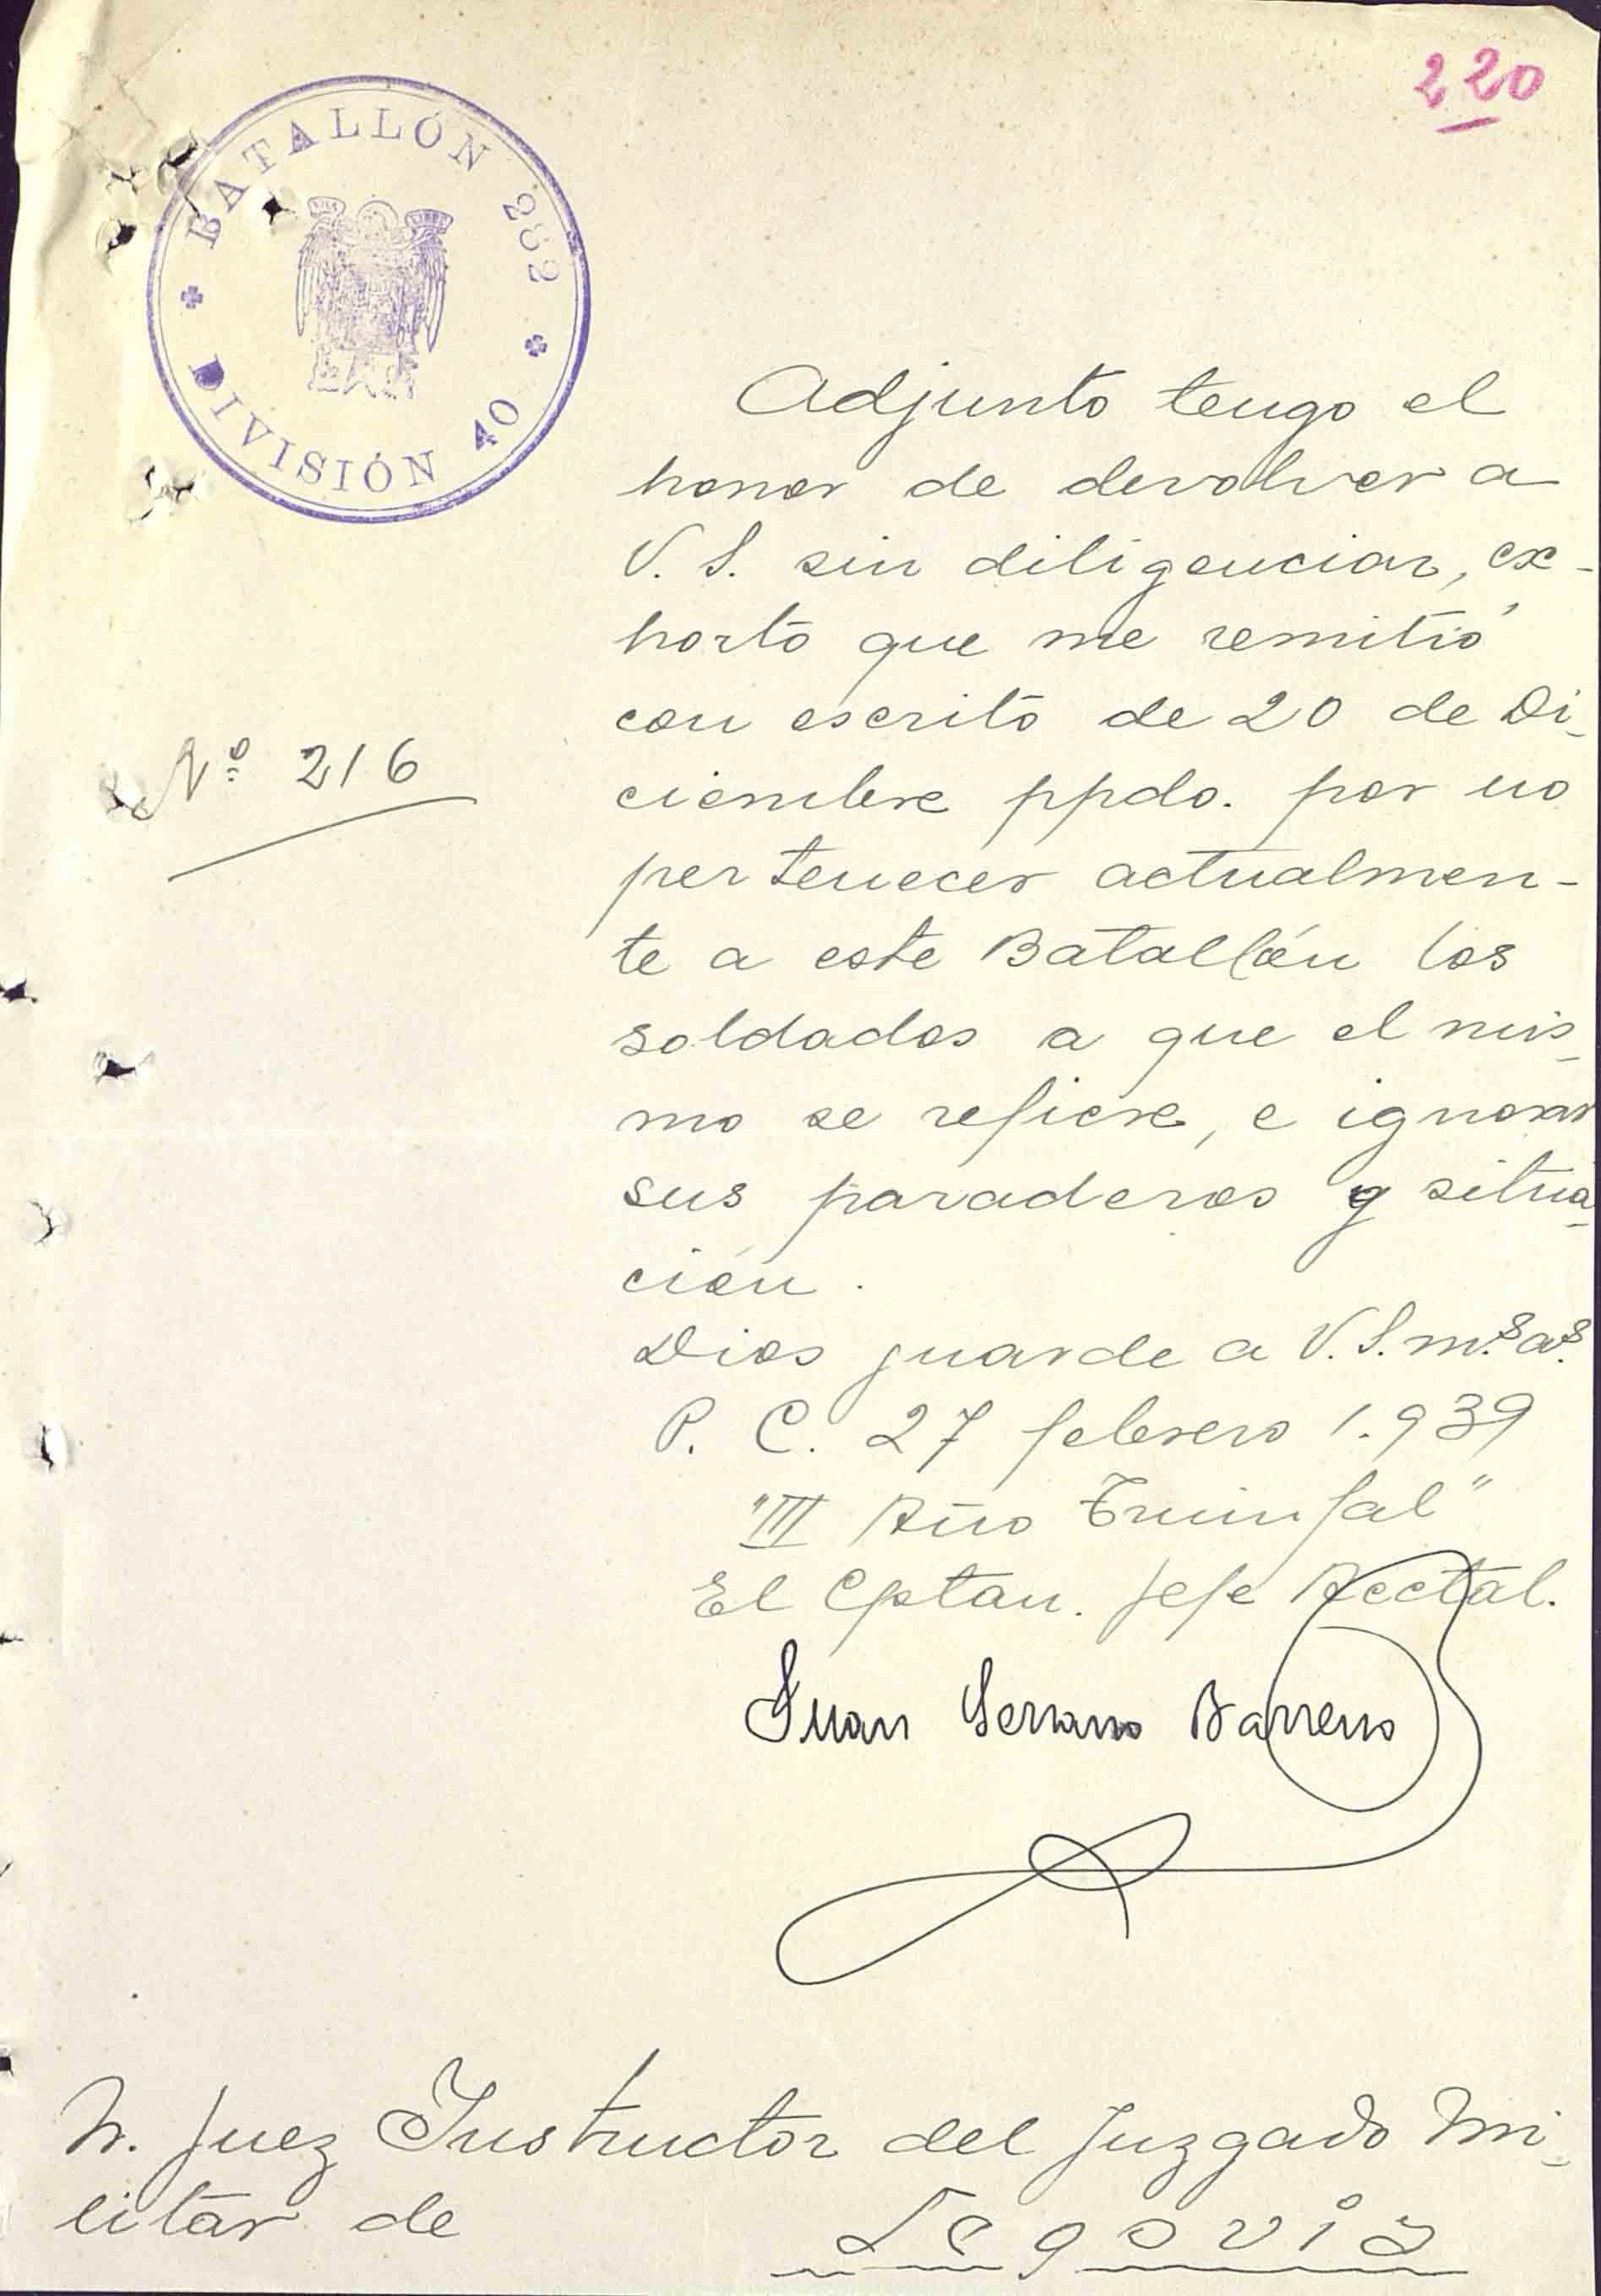 220
BATALLÓN 282
DIVISIÓN 40
Adjunto tengo el
honor de devolver a
V. S. sin diligenciar, ex-
horto que me remitió
con escrito de 20 de Di-
Nº 216
ciembre ppdo. por no
pertenecer actualmen-
te a este Batallón los
soldados a que el mis-
mo se refiere, e ignorar
sus paraderos y situa-
ción.
Dios guarde a V. S. m.s a.s
P. C. 27 febrero 1.939
"III Año Triunfal"
El Cptan. Jefe Acctal.
Juan Serrano Barreno
Sr. Juez Instructor del Juzgado Mi-
litar de Segovia